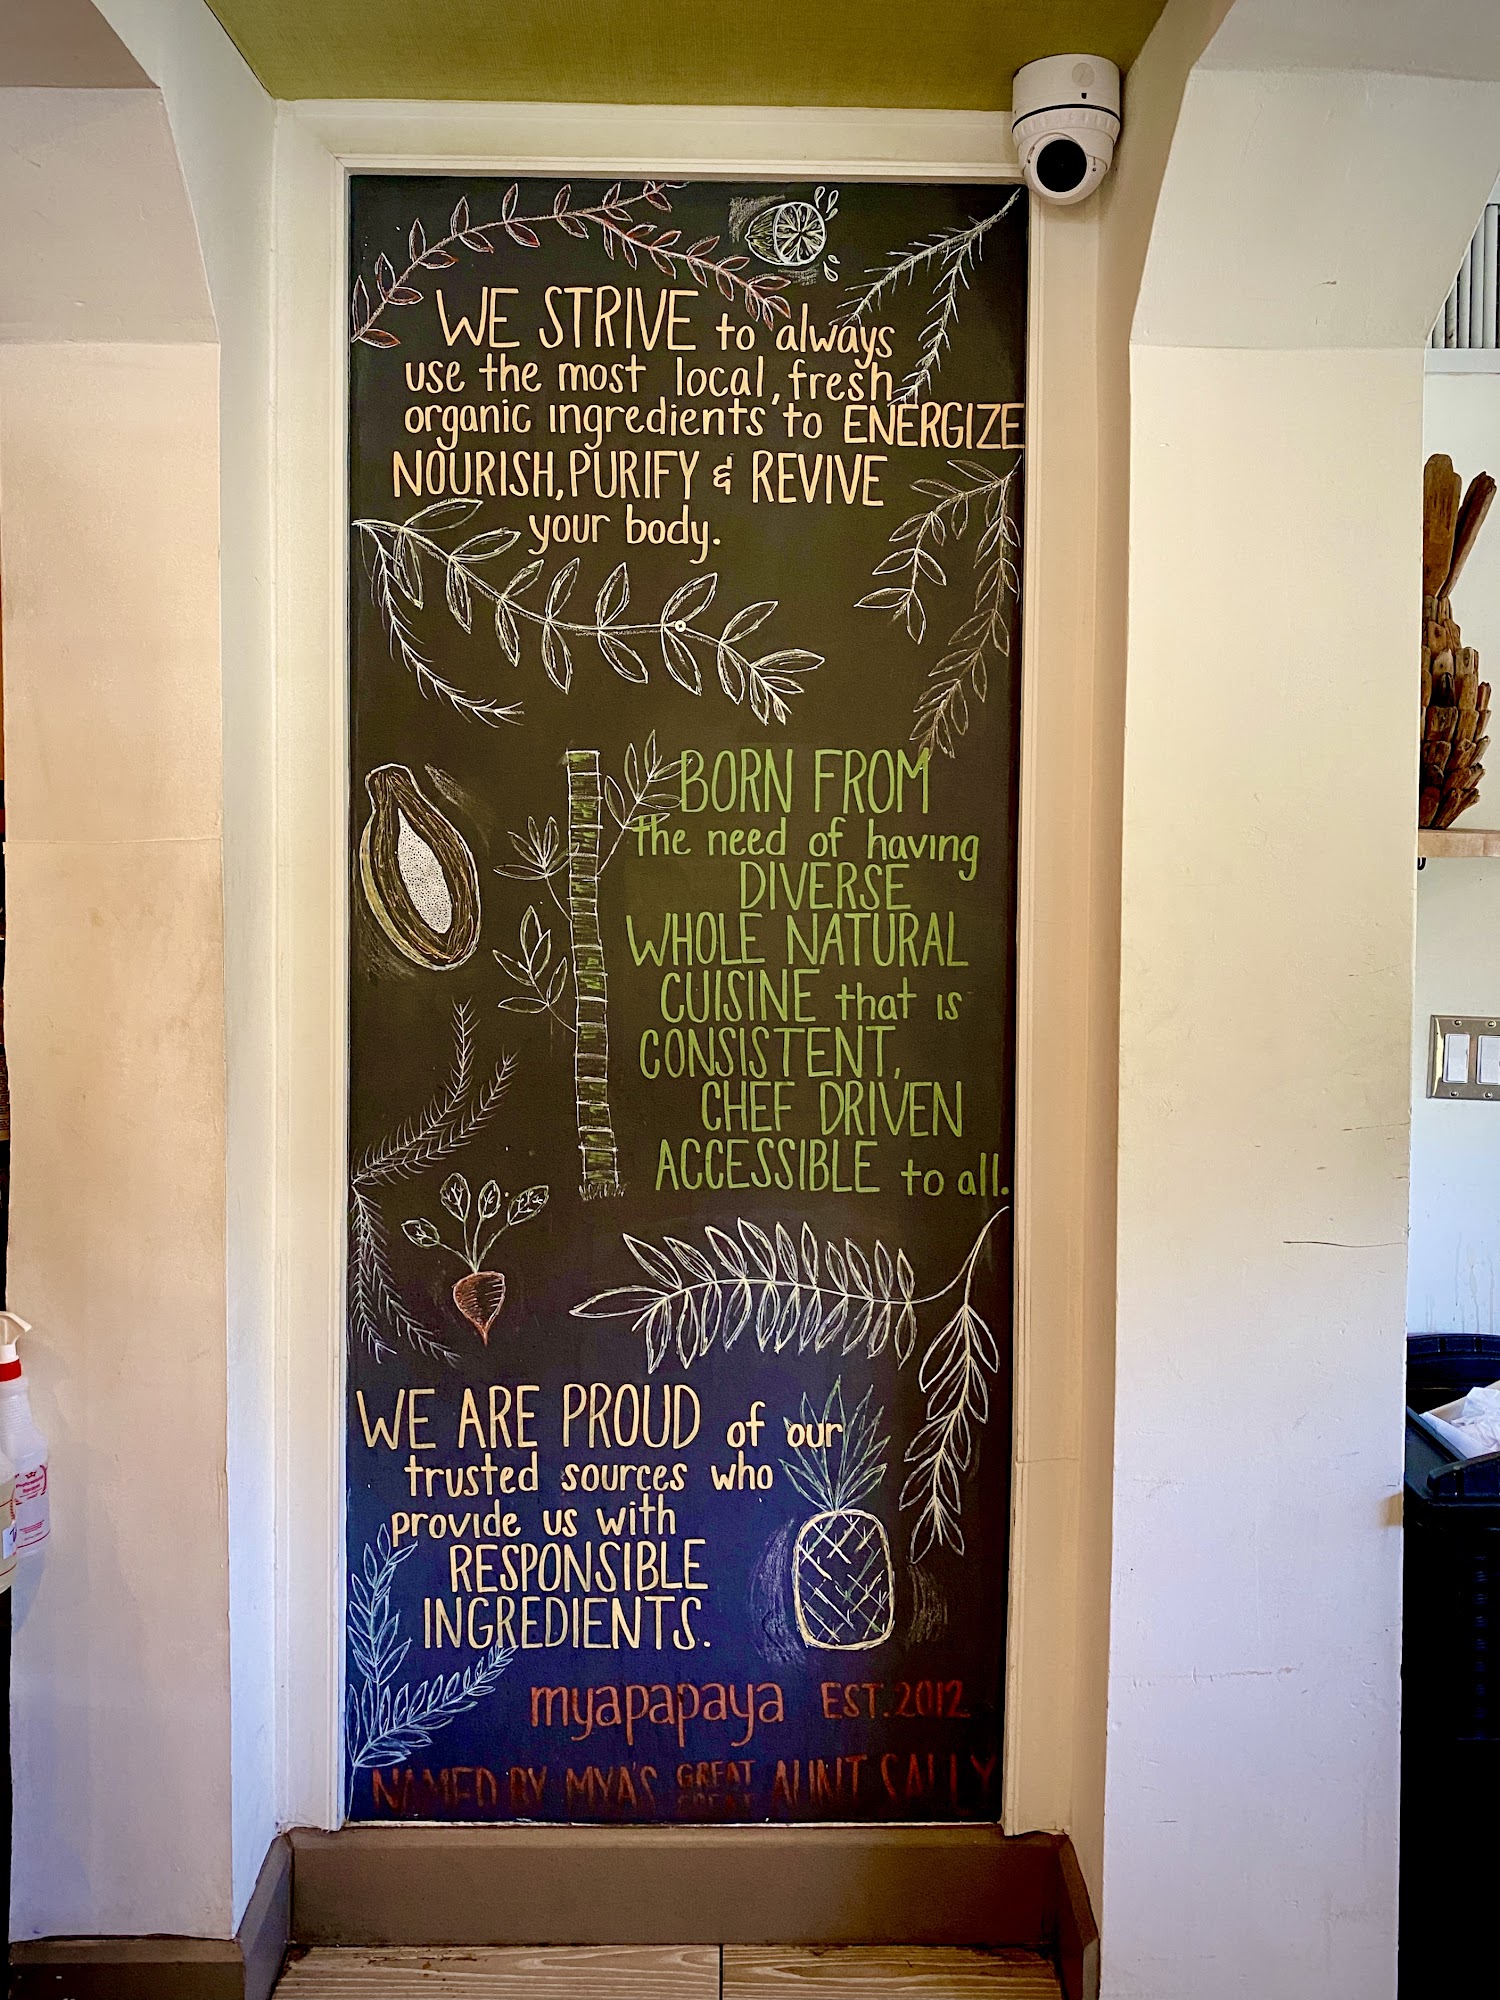 WE STRIVE to always
use the most local, fresh
organic ingredients to ENERGIZE
NOURISH, PURIFY & REVIVE
your body.
BORN FROM
the need of having
DIVERSE
WHOLE NATURAL
CUISINE that is
CONSISTENT,
CHEF DRIVEN
ACCESSIBLE to all.
WE ARE PROUD of our
trusted sources who
provide us with
RESPONSIBLE
INGREDIENTS.
myapapaya EST. 2012
NAMED BY MYA'S GREAT GREAT AUNT SALLY